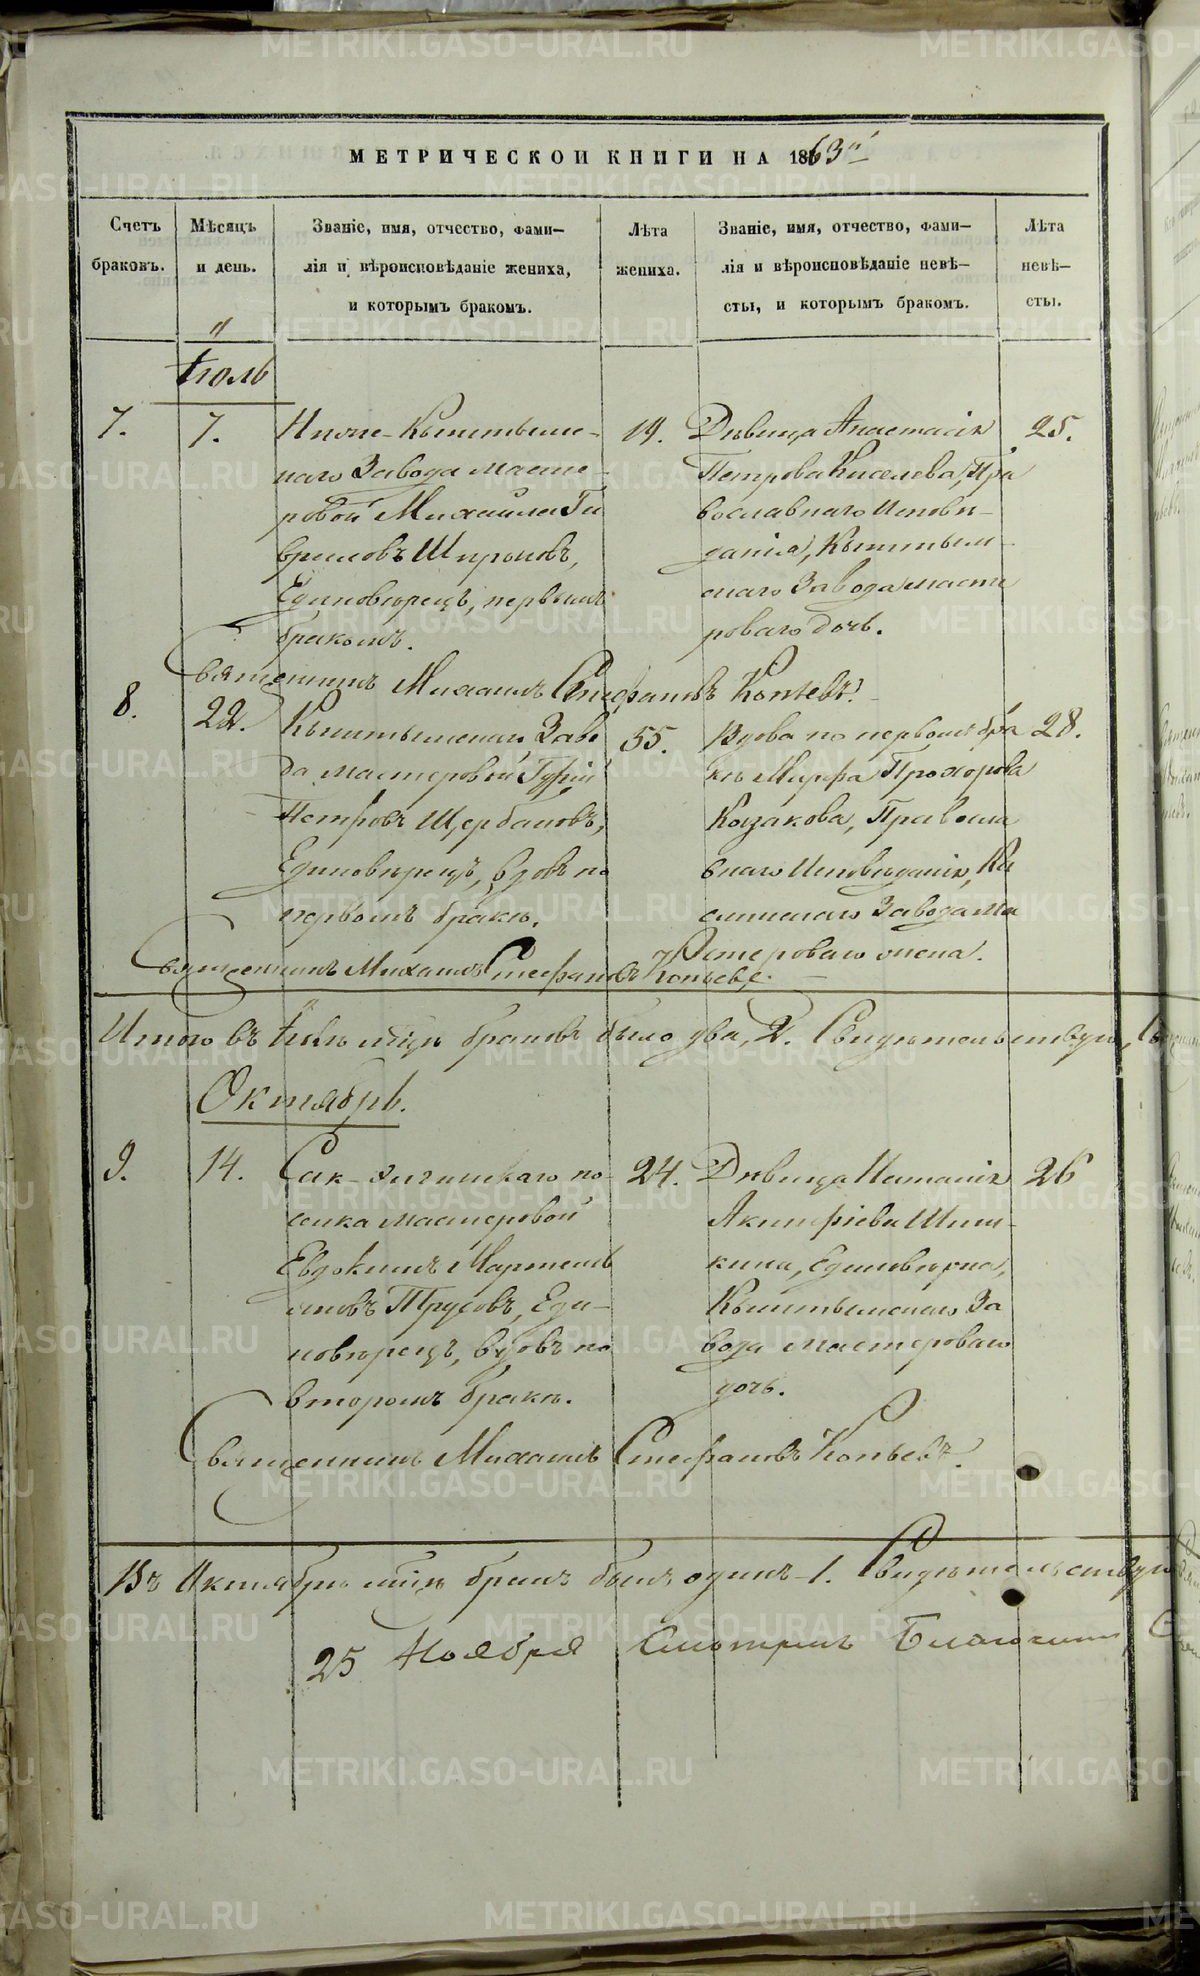 МЕТРИЧЕСКОИ КНИГИ НА 1863й
Счетъ браковъ.
Мѣсяцъ и день.
Званіе, имя, отчество, фами-
лія и вѣроисповѣданіе жениха,
и которымъ бракомъ.
Лѣта жениха.
Званіе, имя, отчество, фами-
лія и вѣроисповѣданіе невѣ-
сты, и которымъ бракомъ.
Лѣта невѣ-
сты.
Іюль
7.
7.
Нязе-Кыштымс-
каго Завода масте-
ровой Михаилъ Га
вриловъ Ширыковъ,
Единовѣрецъ, первымъ
бракомъ.
19.
Дѣвица Анастасія
Петрова Киселева, Пра
вославнаго Исповѣ-
данія, Кыштым-
скаго Завода масте
роваго дочь.
25.
Священникъ Михаилъ Стефановъ Копьевъ.
8.
22.
Кыштымскаго Заво
да мастеровой Гурій
Петровъ Щербаковъ,
Единовѣрецъ, вдовъ по
первомъ бракѣ.
55.
Вдова по первомъ бра
кѣ Марфа Прохорова
Козакова, Правосла
внаго Исповѣданія, Ка
слинскаго Завода ма
стероваго жена.
28.
Священникъ Михаилъ Стефановъ Копьевъ.
Итого въ Іюлѣ м-цѣ браковъ было два, 2. Свидѣтельствую,
Октябрь.
9.
14.
Сак-элгинскаго по-
селка мастеровой
Евдокимъ Мартемья
новъ Трусовъ, Еди-
новѣрецъ, вдовъ по
второмъ бракѣ.
24.
Дѣвица Наталія
Акинфіева Шиш-
кина, Единовѣрка,
Кыштымскаго За
вода мастероваго
дочь.
26
Священникъ Михаилъ Стефановъ Копьевъ.
Въ Октябрѣ м-цѣ бракъ былъ одинъ-1. Свидѣтельствую
25 Ноября Смотрилъ Благочин
METRIKI.GASO-URAL.RU